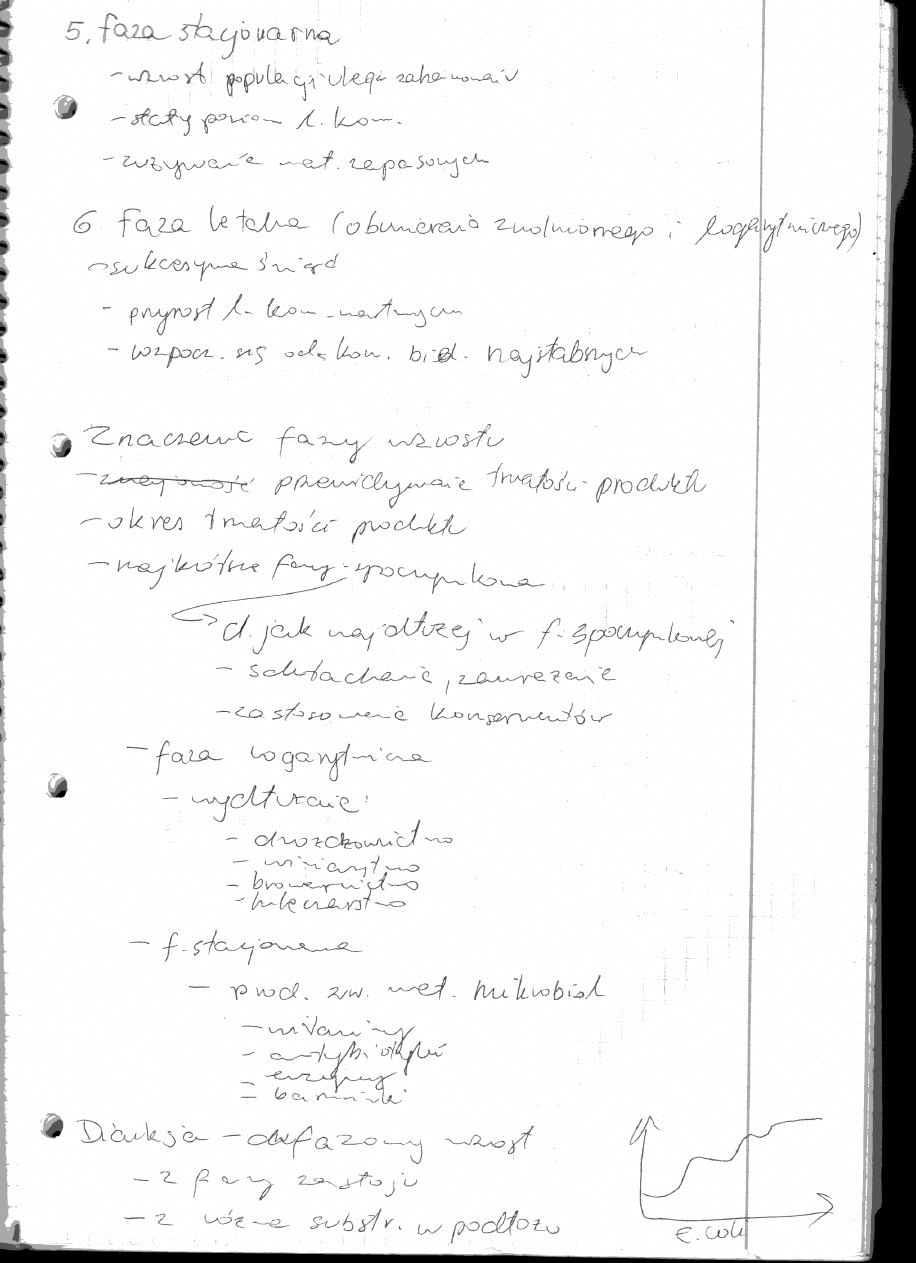 5. faza stacjonarna
- wzrost populacji ulega zahamowaniu
- stały poziom l. kom.
- zużywanie mat. zapasowych
6 faza letalna (obumierania zwolnionego i logarytmicznego)
- sukcesywna śmierć
- przyrost l. kom. martwych
- rozpocz. się od kom. biol. najsłabszych
Znaczenie fazy wzrostu
- przewidywanie trwałości produktu
- okres trwałości produktu
- najkrótsze fazy spoczynkowa
d. jak najdłużej w f. spoczynkowej
- schładzanie, zamrażanie
- zastosowanie konserwantów
- faza logarytmiczna
- wydłużanie:
- drożdżownictwo
- winiarstwo
- browarnictwo
- mleczarstwo
- f. stacjonarna
- prod. zw. met. mikrobiol
- witaminy
- antybiotyków
- enzymy
- barwniki
Diauksja - dwufazowy wzrost
- 2 fazy zastoju
- 2 różne substr. w podłożu
E. coli